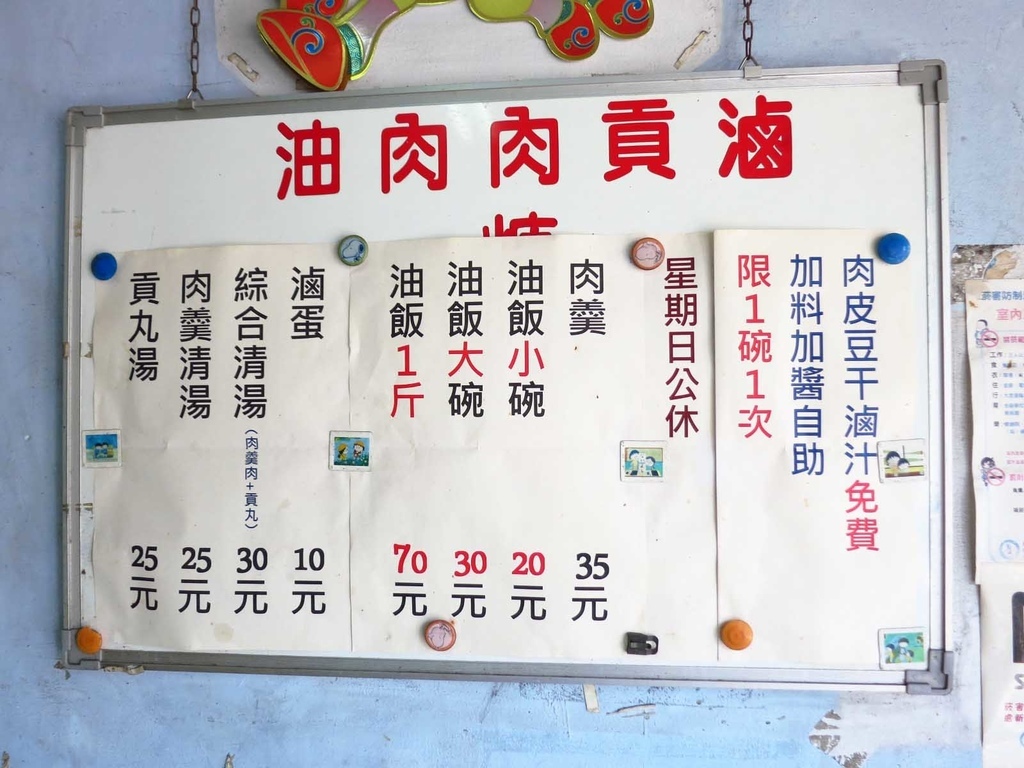 油肉肉貢滷
肉皮豆干滷汁免費
加料加醬自助
限1碗1次
星期日公休
肉羹 35元
油飯小碗 20元
油飯大碗 30元
油飯1斤 70元
滷蛋 10元
綜合清湯(肉羹肉+貢丸) 30元
肉羹清湯 25元
貢丸湯 25元
室內